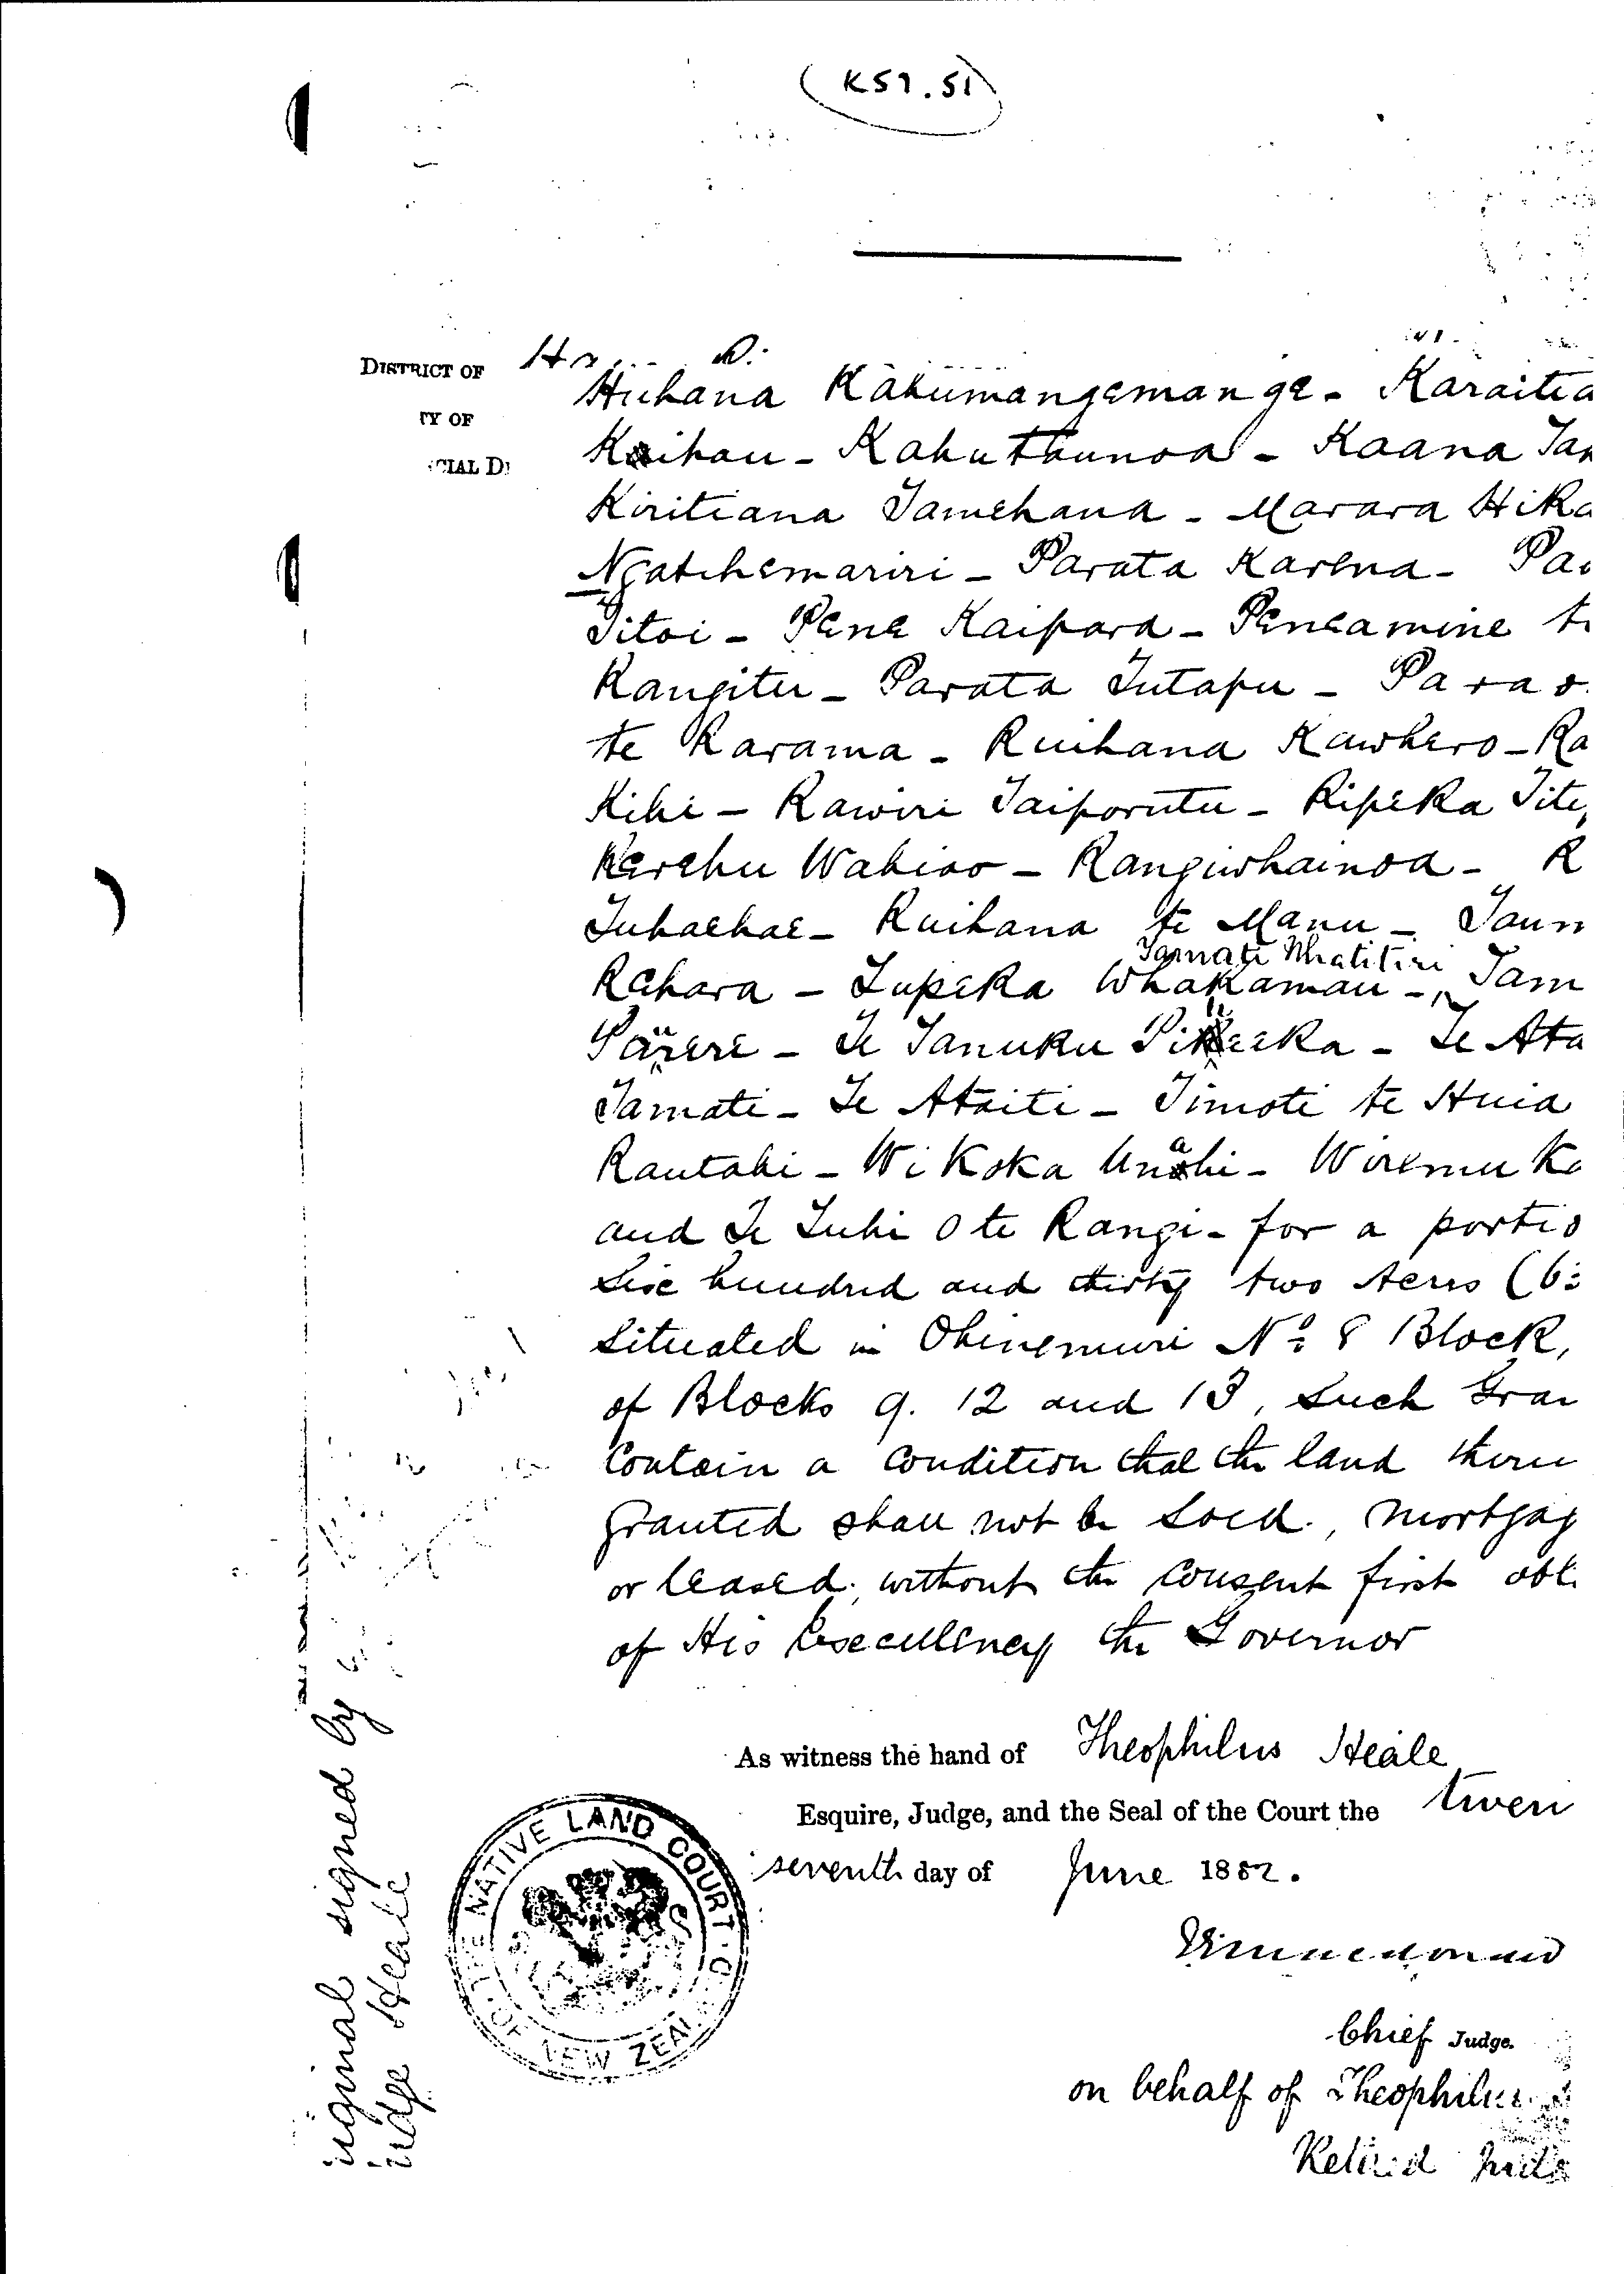 K57.51
DISTRICT OF
TY OF
CIAL D
Huhana Kahumangemange - Karaitia
Kaihau - Kahutaunoa - Kaana Tam
Kiritiana Tamehana - Marara Hika
Ngatihemariri - Parata Karena - Pa
Titoi - Pene Kaipara - Peneamine t
Rangitu - Parata Tutapu - Parao
te Karama - Ruihana Kawhero - Ra
Kihi - Rawiri Taiporutu - Ripeka Tite
Rerehu Wahiao - Rangiwhainoa - R
Tuhaehae - Ruihana te Manu - Taun
Tamati Whatitiri
Rehara - Tupeka Whakamau - Tam
Parere - Te Tanuku - Te Ata
Tamati - Te Ataiti - Timoti te Huia
Rautahi - Wi Koka Unahi - Wiremu K
and Te Tuhi O te Rangi - for a portio
Six hundred and thirty two Acres (6
Situated in Ohinemuri No 8 Block,
of Blocks 9. 12 and 13, Such Gran
Contain a condition that the land there
granted shall not be Sold, mortgag
or leased, without the consent first obt
of His Excellency the Governor
As witness the hand of Theophilus Heale
Esquire, Judge, and the Seal of the Court the twen
seventh day of June 1882.
Chief Judge.
on behalf of Theophilus
Retired Judg
THE NATIVE LAND COURT OF NEW ZEAL
riginal signed by
udge Heale